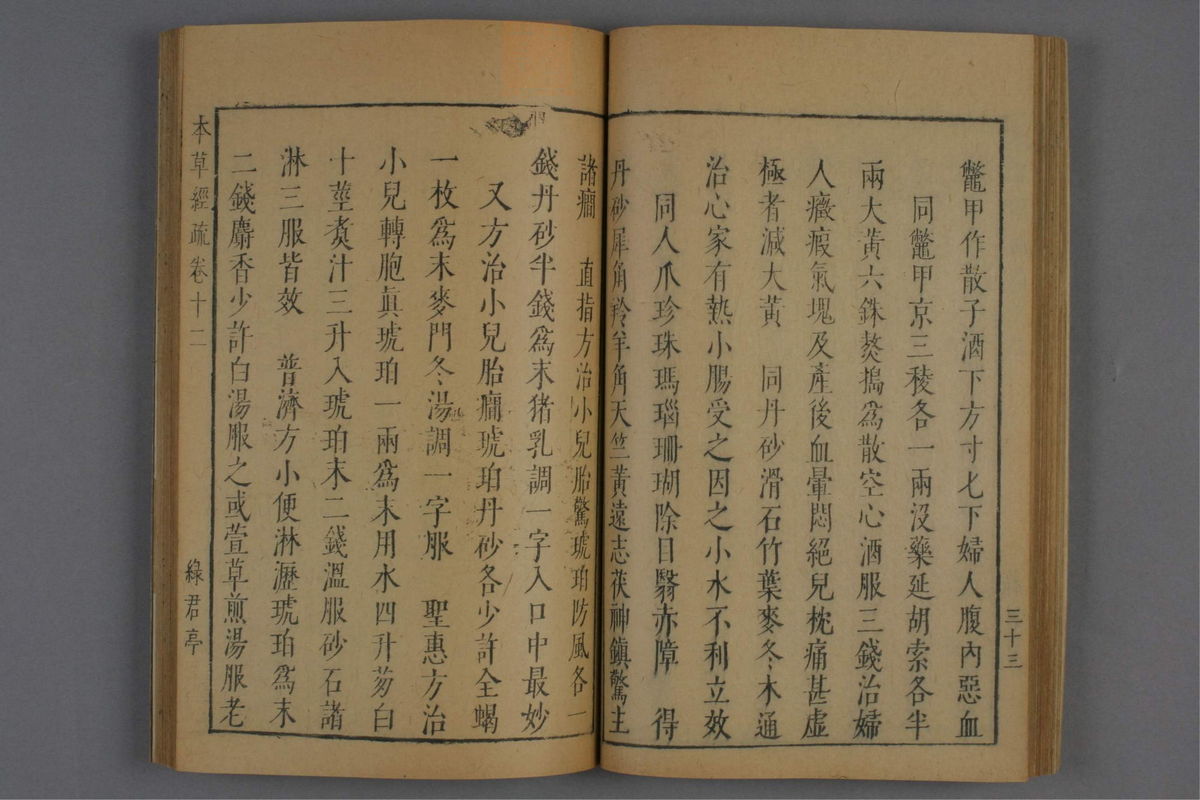 鼈甲作散子酒下方寸匕下婦人腹內惡血
同鼈甲京三稜各一兩沒藥延胡索各半
兩大黃六銖熬搗爲散空心酒服三錢治婦
人癥瘕氣塊及產後血暈悶絕兒枕痛甚虛
極者減大黃　同丹砂滑石竹葉麥冬木通
治心家有熱小腸受之因之小水不利立效
同人爪珍珠瑪瑙珊瑚除目翳赤障　得
丹砂犀角羚羊角天竺黃遠志茯神鎮驚主
三十三
諸癎　直指方治小兒胎驚琥珀防風各一
錢丹砂半錢爲末猪乳調一字入口中最妙
又方治小兒胎癎琥珀丹砂各少許全蝎
一枚爲末麥門冬湯調一字服　聖惠方治
小兒轉胞真琥珀一兩爲末用水四升葱白
十莖煑汁三升入琥珀末二錢溫服砂石諸
淋三服皆效　普濟方小便淋瀝琥珀爲末
二錢麝香少許白湯服之或萱草煎湯服老
本草經疏卷十二
綠君亭